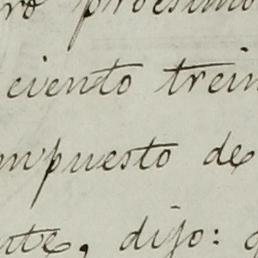 ro proesimo
ciento trein
mpuesto de
nte, dijo: q